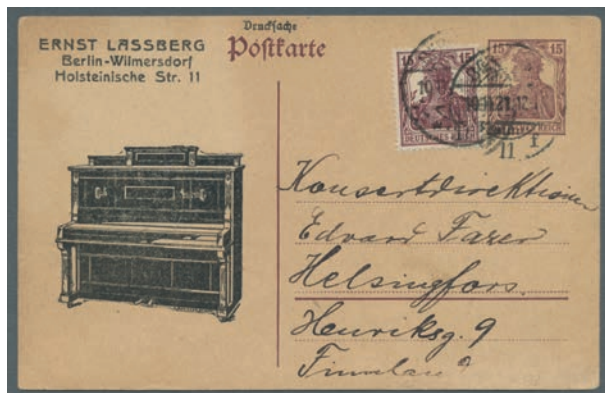 ERNST LASSBERG
Berlin-Wilmersdorf
Holsteinische Str. 11
Drucksache
Postkarte
15 15
DEUTSCHES REICH
15 15
Konsertdirektion
Edvard Fazer
Helsingfors.
Henriksg. 9
Finnland